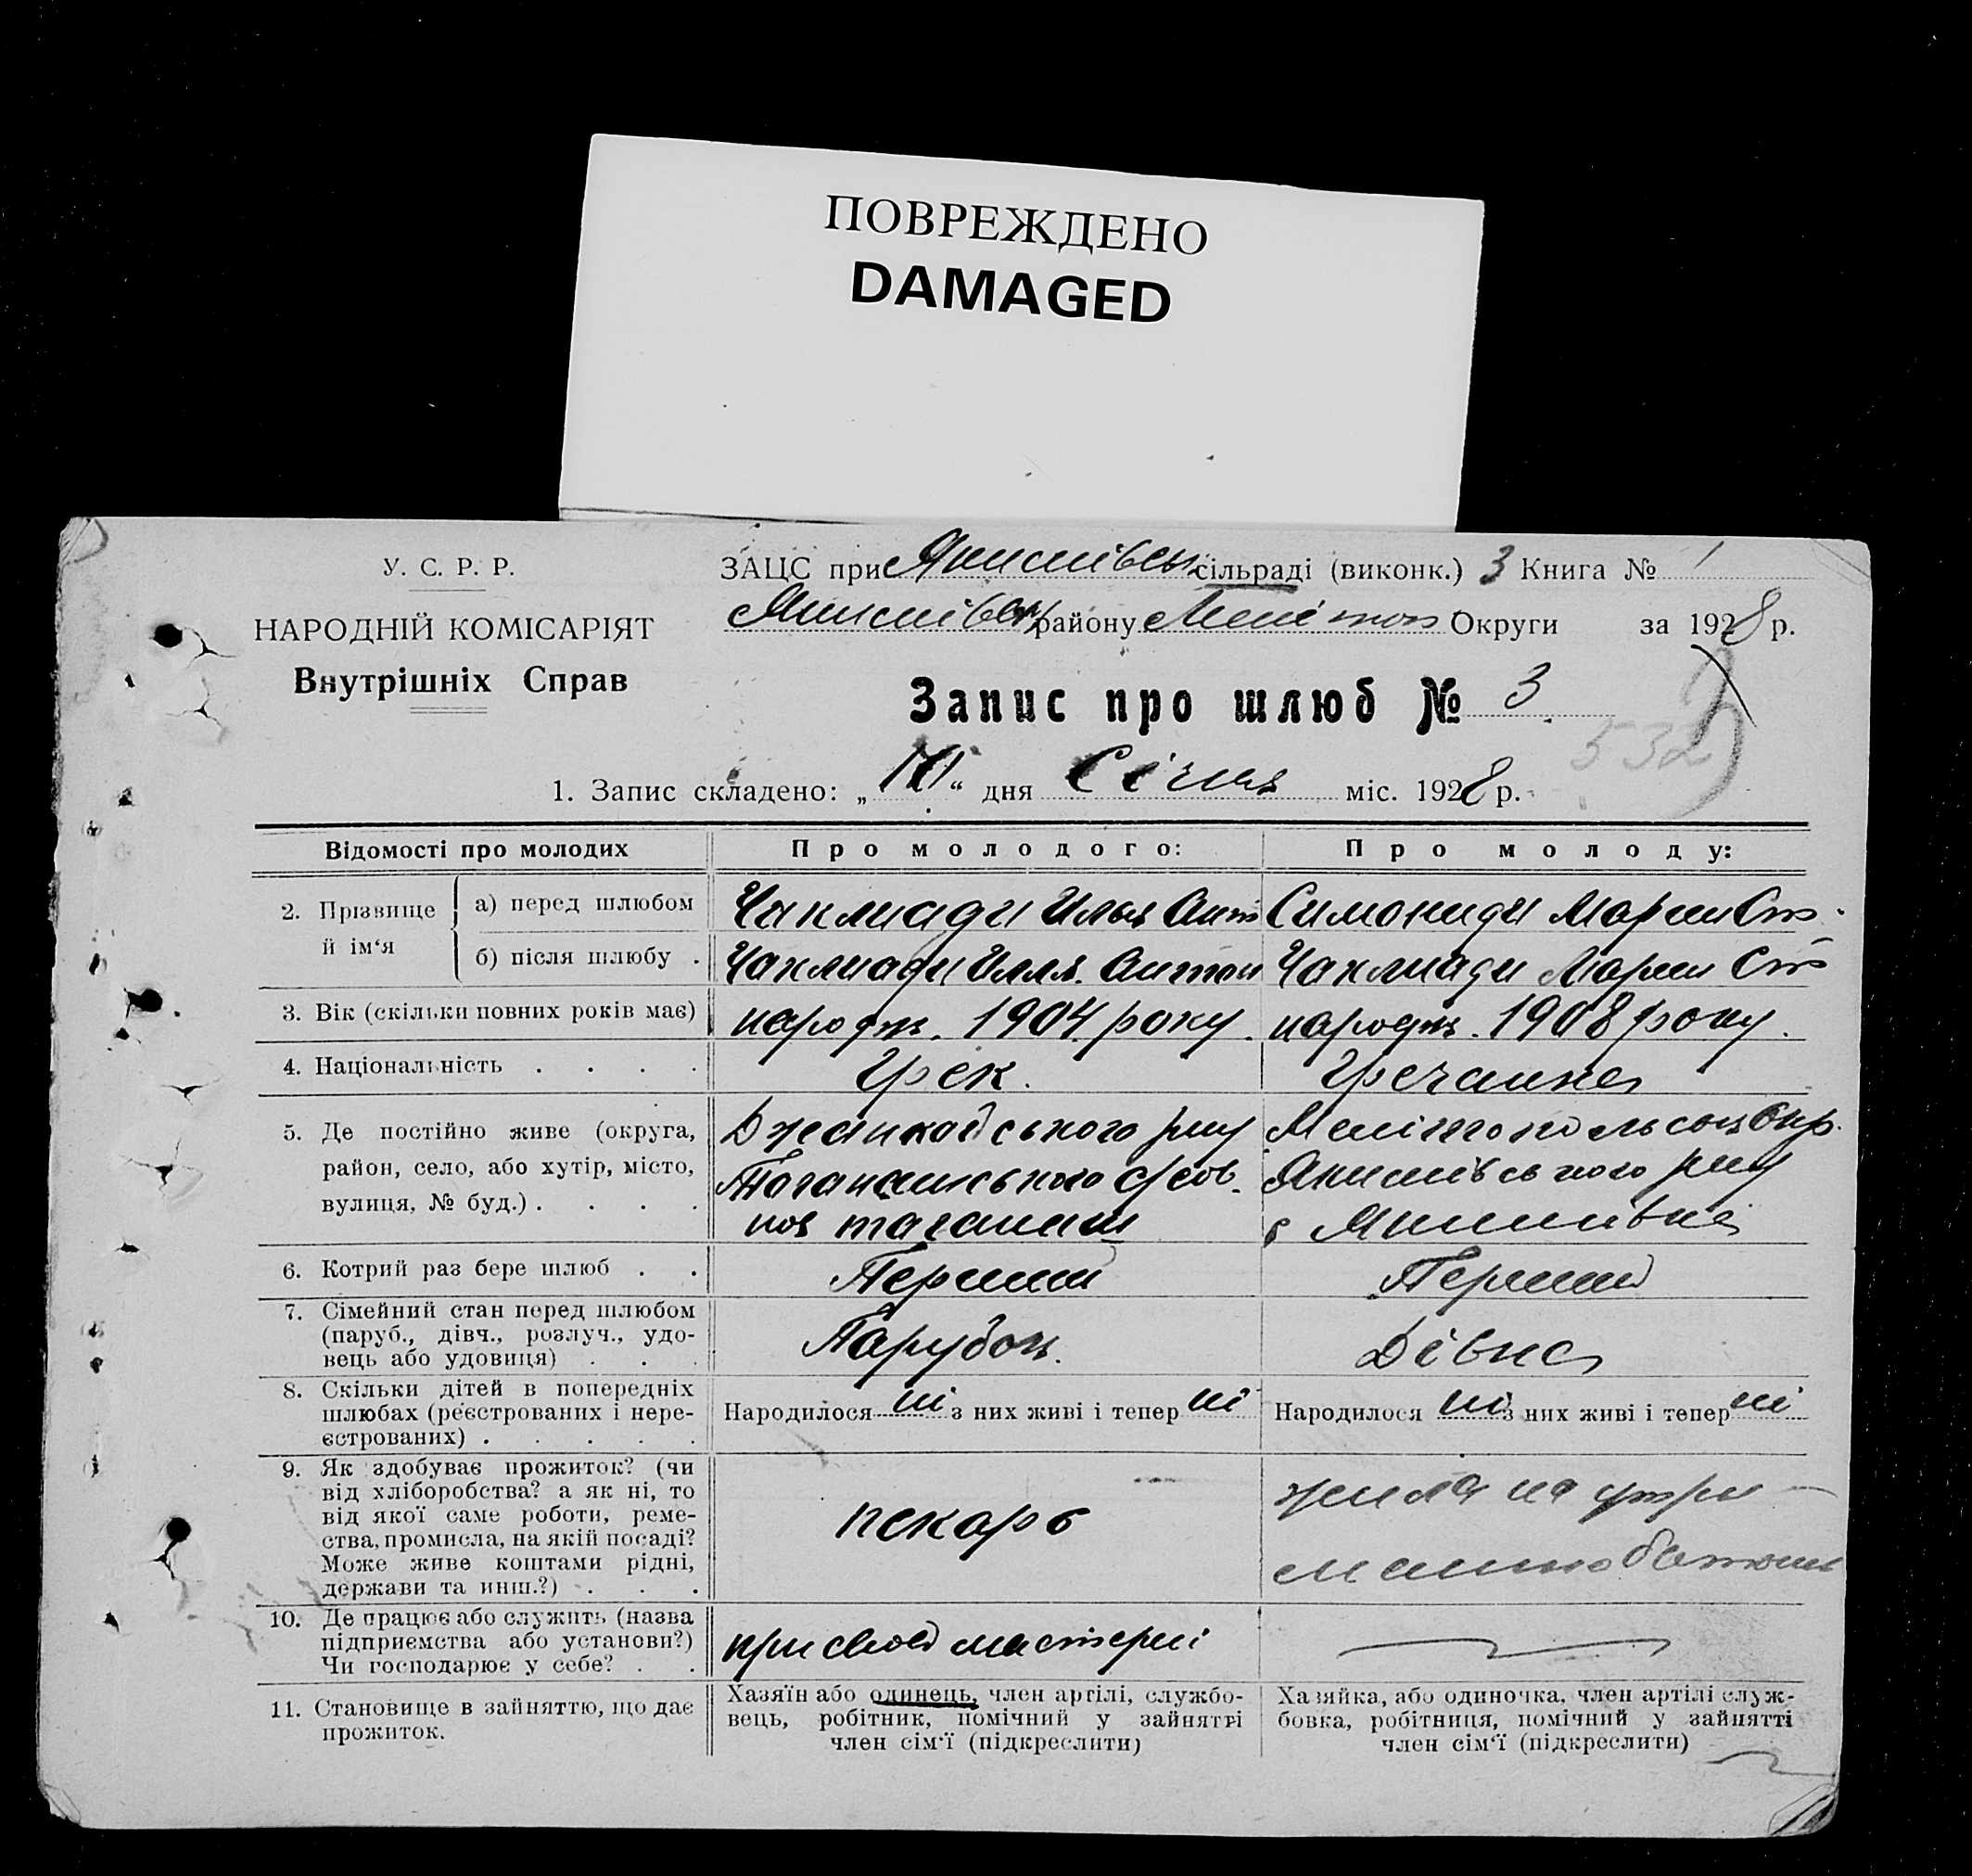 ПОВРЕЖДЕНО
DAMAGED
У. С. Р. Р.
НАРОДНІЙ КОМІСАРІЯТ
Внутрішніх Справ
ЗАЦС при Якимівськ сільраді (виконк.) З Книга № 1
Якимівськ району Меліто Округи за 1928 р.
Запис про шлюб № 3
532
1. Запис складено: „ “ дня Січня міс. 1928 р.
Відомості про молодих Про молодого: Про молоду:
2. Прізвище й ім‘я
а) перед шлюбом Чакмиади Илья Ант Симониди Мария Ст
б) після шлюбу . Чакмиади Илля Антон Чакмиади Мария Ст
3. Вік (скільки повних років має) народж. 1904 року. народж. 1908 року.
4. Національність . . . . Грек. Гречанка
5. Де постійно живе (округа, Джанкойського р-ну Мелітопольськ Окр.
район, село, або хутір, місто, Таганашського Якимівського р-ну
вулиця, № буд.) . . . . таганаш с Якимівка
6. Котрий раз бере шлюб . . Перший Перший
7. Сімейний стан перед шлюбом
(паруб., дівч., розлуч., удо-
вець або удовиця) . . . Парубок. Дівка
8. Скільки дітей в попередніх
шлюбах (реєстрованих і нере- Народилося ні з них живі і тепер ні Народилося ні з них живі і тепер ні
єстрованих) . . . . .
9. Як здобуває прожиток? (чи
від хліборобства? а як ні, то жила на утри-
від якої саме роботи, реме- пекарь
ства, промисла, на якій посаді?
Може живе коштами рідні, манню батьки
держави та инш.?) . . .
10. Де працює або служить (назва
підприємства або установи?) при своей мастерні
Чи господарює у себе? . .
11. Становище в зайняттю, що дає Хазяїн або одинець, член артілі, службо- Хазяйка, або одиночка, член артілі служ-
прожиток. вець, робітник, помічний у зайнятті бовка, робітниця, помічний у зайнятті
член сім‘ї (підкреслити) член сім‘ї (підкреслити)